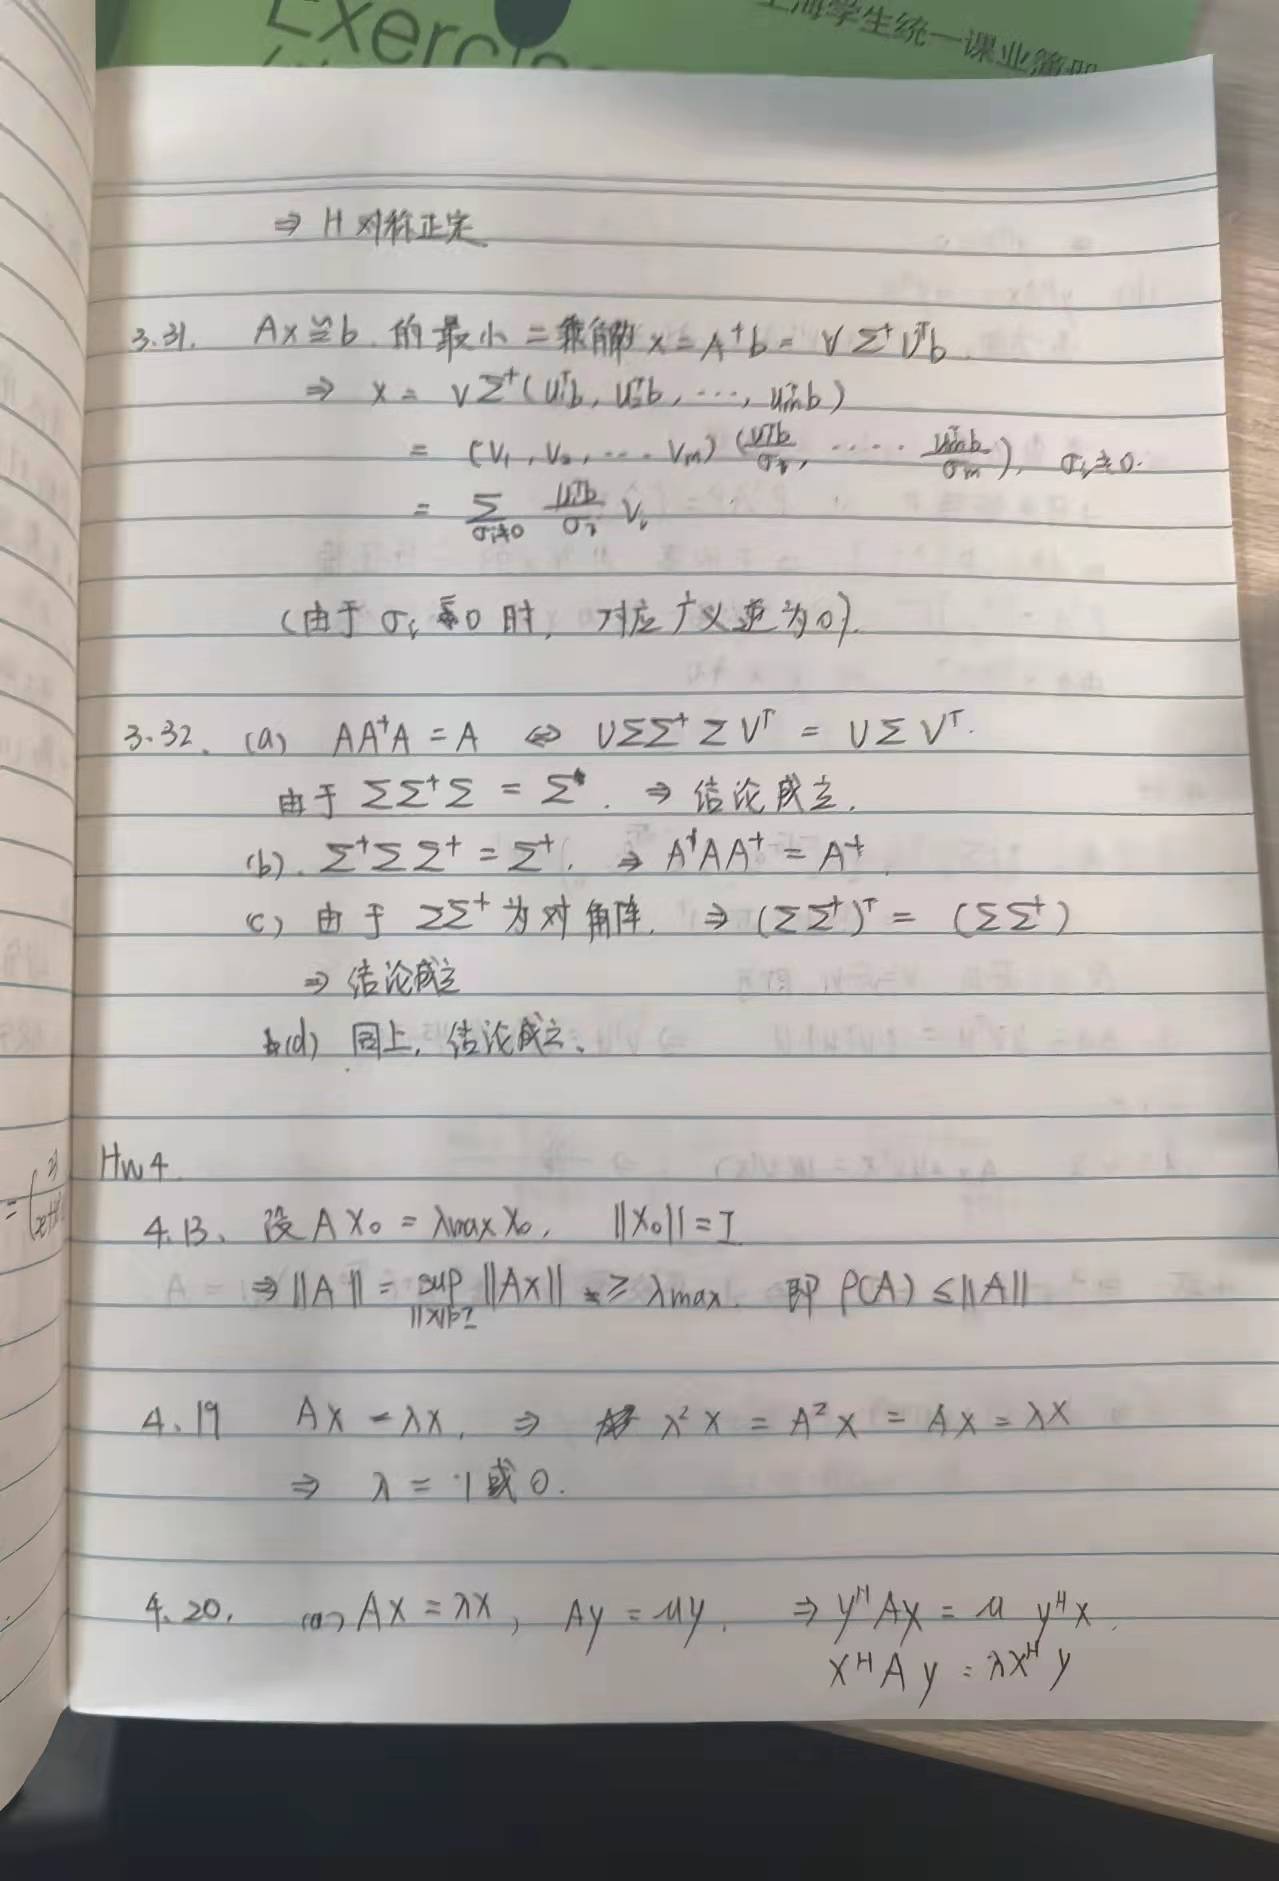 Exercise
上海学生统一课业簿册
⇒ H 对称正定
3.31. Ax≅b 的最小二乘解 x = A⁺b = VΣ⁺Uᵀb
⇒ x = VΣ⁺(u₁ᵀb, u₂ᵀb, ⋯, uₘᵀb)
= (V₁, V₂, ⋯ Vₘ) (u₁ᵀb/σ₁, ⋯⋯ uₘᵀb/σₘ), σᵢ≠0.
= Σ_{σᵢ≠0} uᵢᵀb/σᵢ Vᵢ
(由于 σᵢ = 0 时, 对应广义逆为0).
3.32. (a) AA⁺A = A ⇔ UΣΣ⁺ΣVᵀ = UΣVᵀ.
由于 ΣΣ⁺Σ = Σ. ⇒ 结论成立.
(b). Σ⁺ΣΣ⁺ = Σ⁺. ⇒ A⁺AA⁺ = A⁺
(c) 由于 ΣΣ⁺ 为对角阵. ⇒ (ΣΣ⁺)ᵀ = (ΣΣ⁺)
⇒ 结论成立
(d) 同上, 结论成立.
Hw4.
4.13. 设 AX₀ = λmax X₀, ||X₀|| = I
⇒ ||A|| = sup_{||X||=I} ||Ax|| ≥ λmax. 即 ρ(A) ≤ ||A||
4.19 Ax = λx. ⇒ λ²x = A²x = Ax = λx
⇒ λ = 1或0.
4.20. (a) Ax = λx, Ay = μy. ⇒ yᴴAx = μ yᴴx.
xᴴAy = λxᴴy